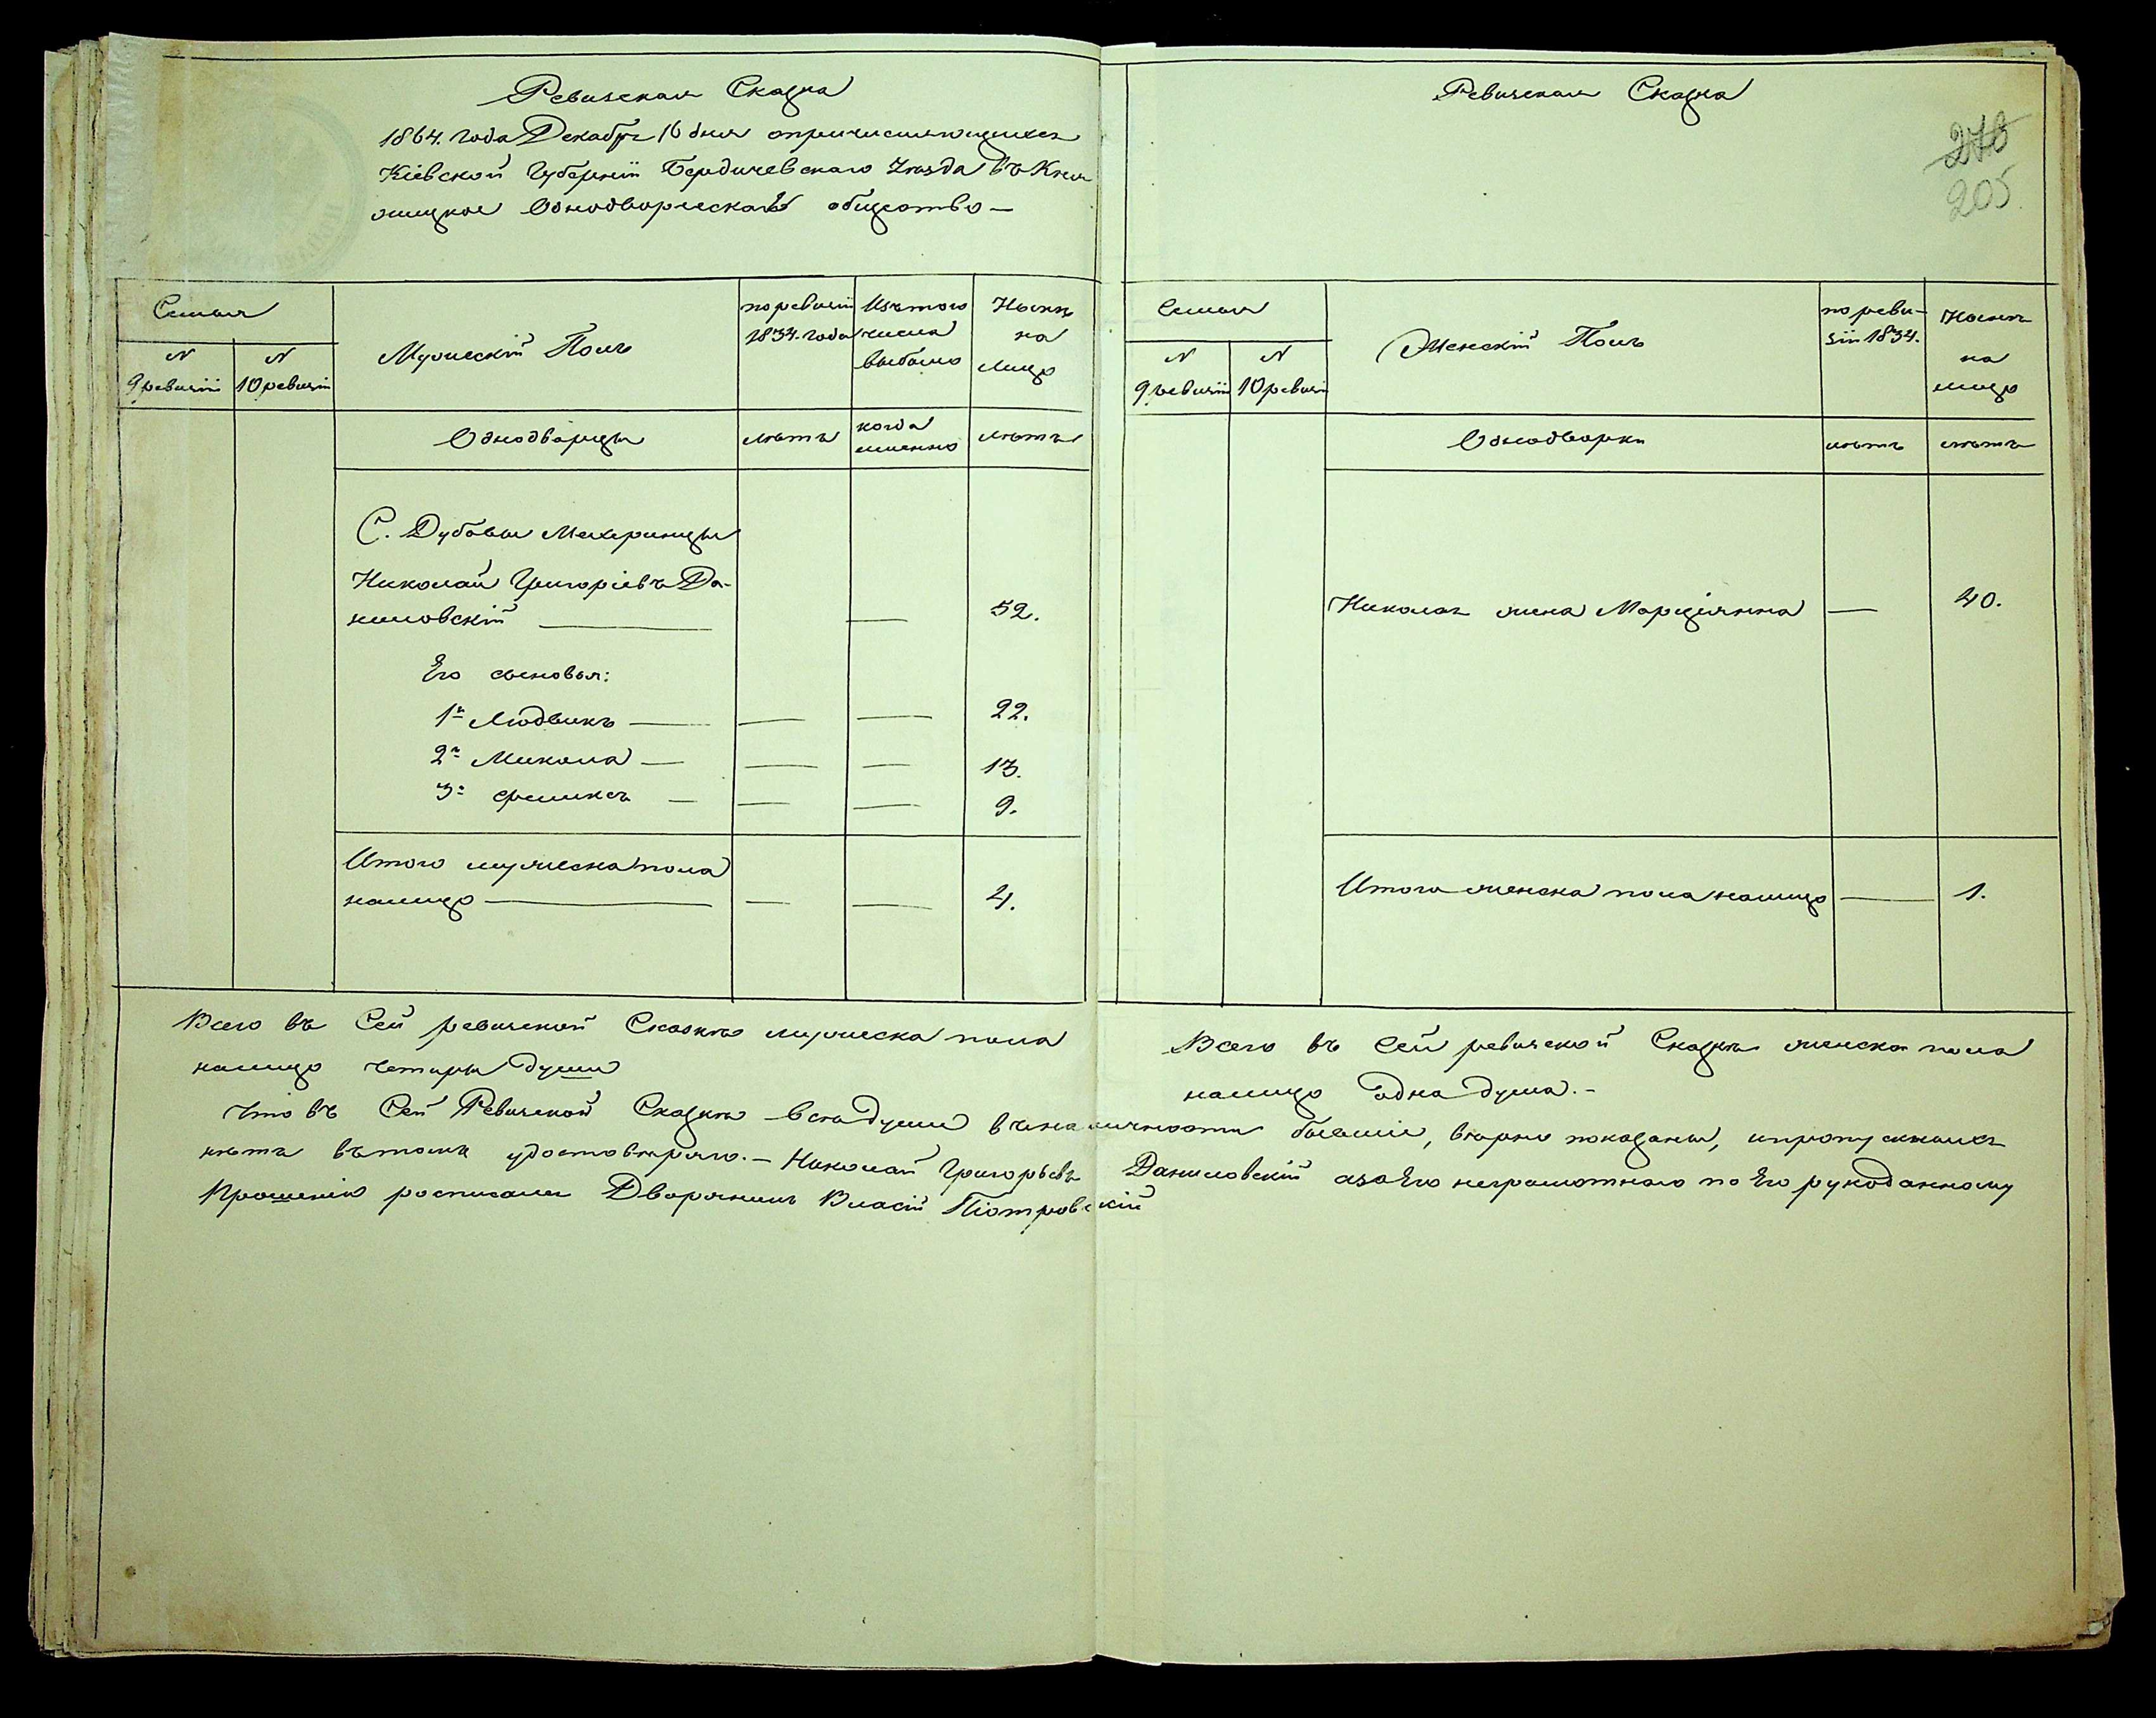 Ревизская Сказка
1864. года Декабря 16 дня о причисляющихся
Кіевской Губерніи Бердичевскаго Уѣзда въ Кня
жицкое Однодворческое общество —
Семья
N
9 ревизіи
N
10 ревизіи
Мужескій Полъ
по ревизіи
1834. года
Изъ того
числа
выбыло
Нынѣ
на
лицо
Однодворцы
лѣта
когда
именно
лѣта
С. Дубовы Махаринцы
Николай Григоріевъ Да-
ниловскій — — 52.
Его сыновья:
1й Людвикъ — — — 22.
2й Микола — — — 13.
3й Феликсъ — — — 9.
Итого мужеска пола
налицо — — — 4.
Всего въ Сей ревизской Сказкѣ мужеска пола
налицо четыри души
Ревизская Сказка
276
205.
Семья
N
9 ревизіи
N
10 ревизіи
Женскій Полъ
по реви-
зіи 1834.
Нынѣ
на
лицо
Однодворки
лѣта
лѣта
Николая жена Марціянна — 40.
Итого женска пола налицо — 1.
Всего въ Сей ревизской Сказкѣ женска пола
налицо одна душа. -
Что въ Сей Ревизской Сказкѣ всѣ души въ наличности бывшіе, вѣрно показаны, и пропускныхъ
нѣтъ въ томъ удостовѣряю. — Николай Григорьевъ Даниловскій а за Его неграмотнаго по Его рукоданному
Прошенію росписался Дворянинъ Власій Піотровскій